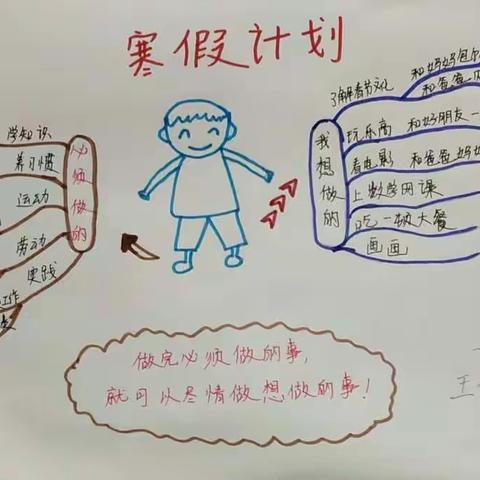 寒假计划
学知识
养习惯
运动
劳动
实践
工作
必须做的
我想做的
了解春节文化
和妈妈包
和爸爸
玩乐高 和好朋友一
看电影 和爸爸妈妈
上数学网课
吃一顿大餐
画画
做完必须做的事,
就可以尽情做想做的事!
王